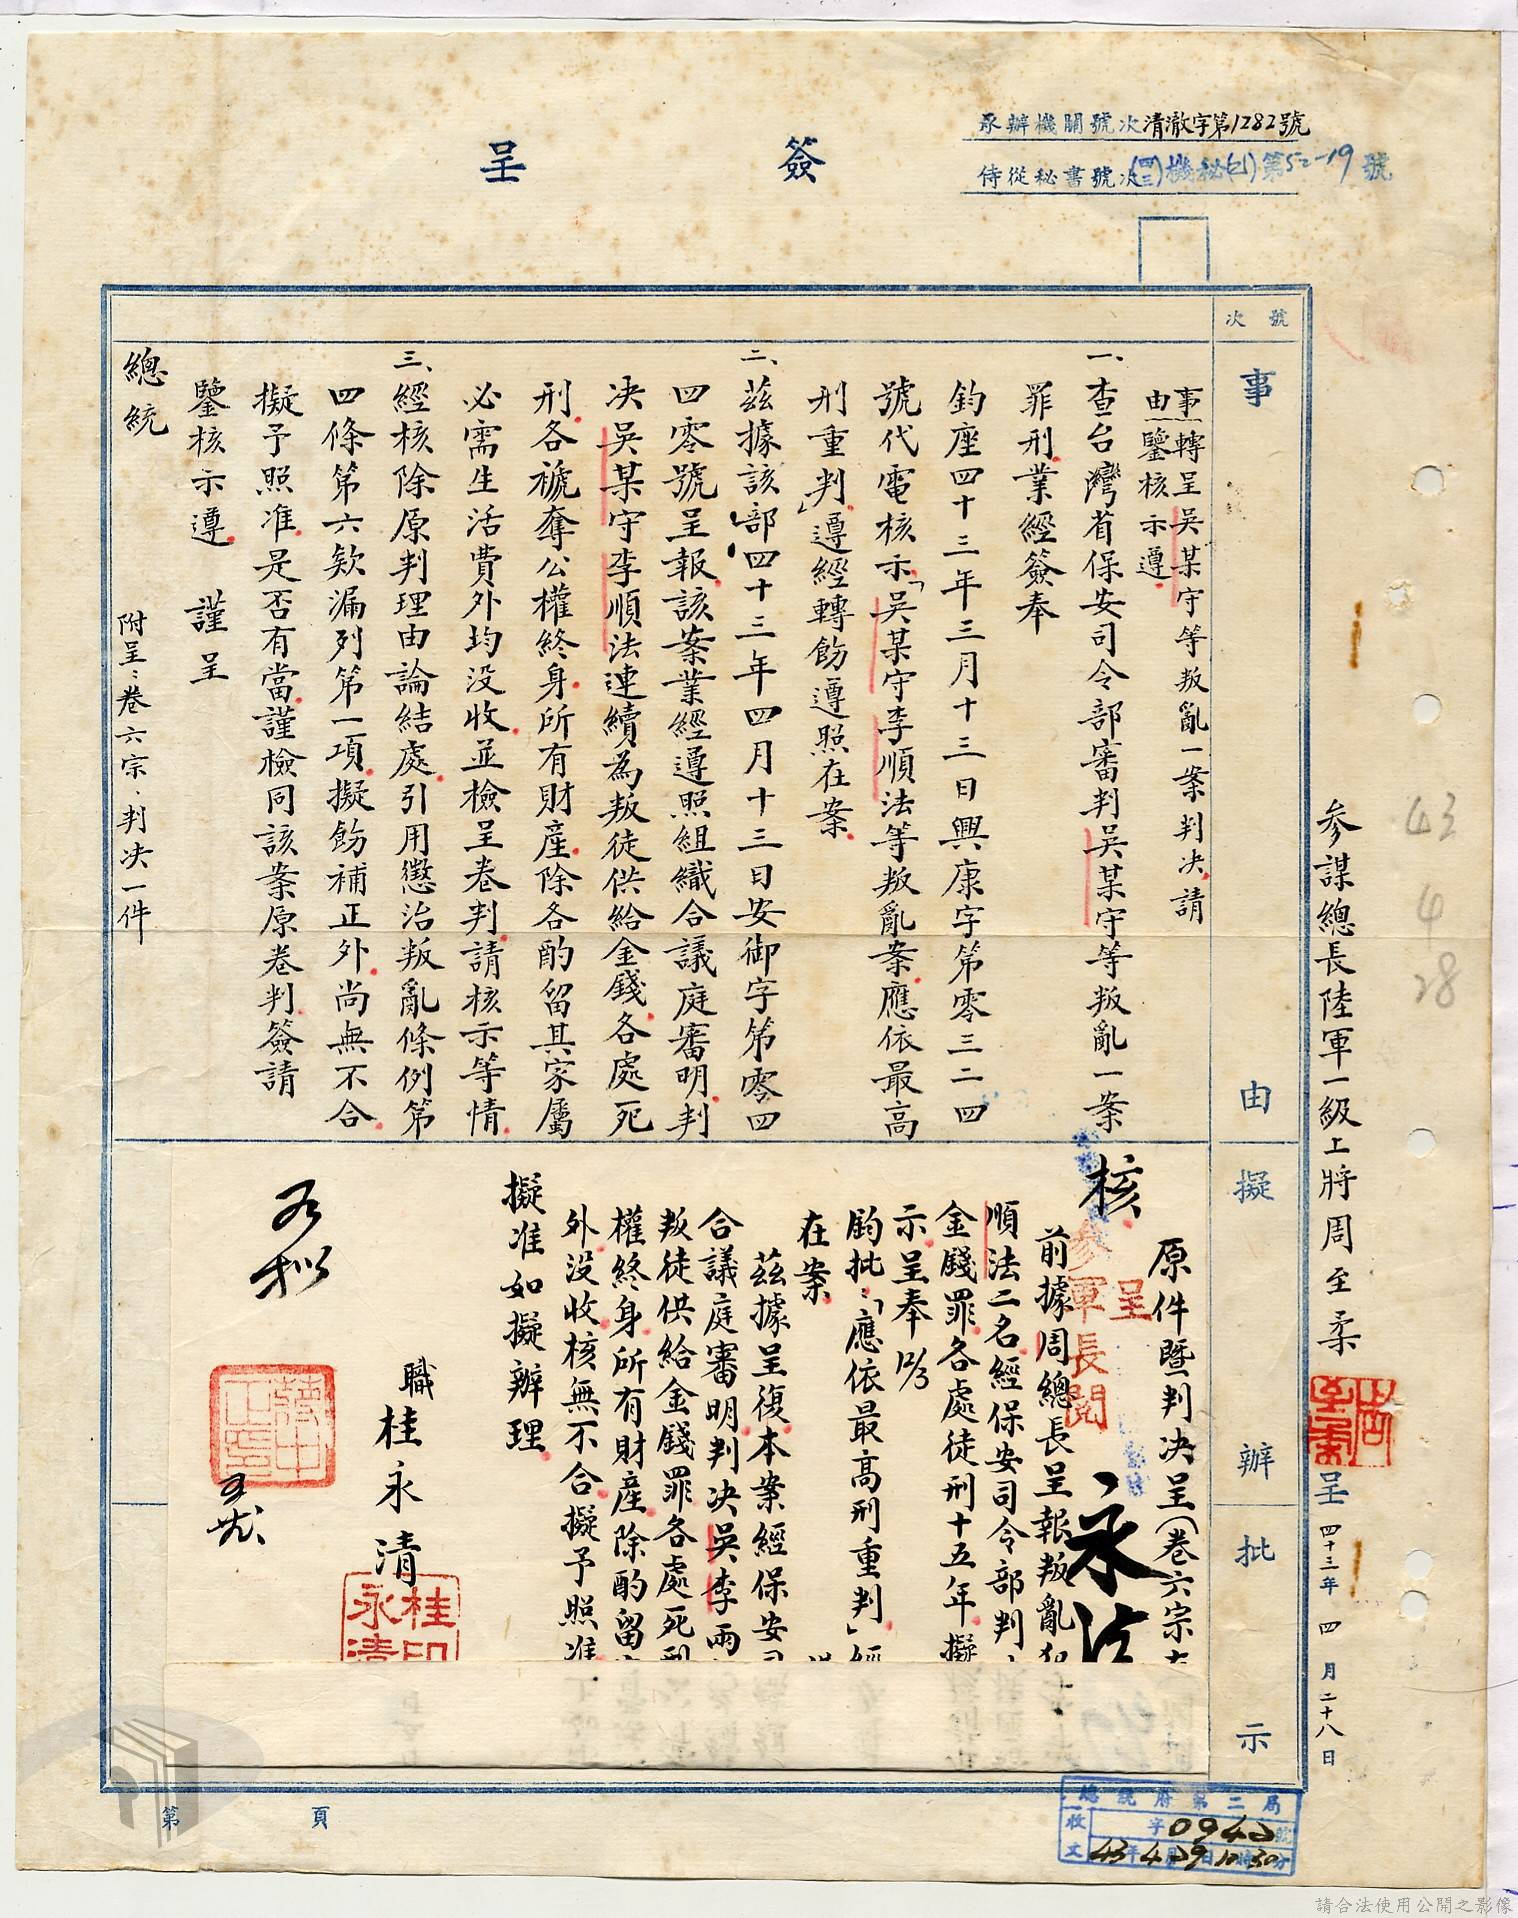 簽呈
承辦機關號次清澈字第1282號
侍從秘書號次(四三)機秘(乙)第52-19號
號次
事由
擬辦
批示
事由:轉呈吳某守等叛亂一案判決,請
鑒核示遵。
一、查台灣省保安司令部審判吳某守等叛亂一案
罪刑業經簽奉
鈞座四十三年三月十三日興康字第零三二四
號代電核示「吳某守李順法等叛亂案應依最高
刑重判」遵經轉飭遵照在案。
二、茲據該部四十三年四月十三日安御字第零四
四零號呈報該案業經遵照組織合議庭審明判
決吳某守李順法連續為叛徒供給金錢各處死
刑各褫奪公權終身所有財產除各酌留其家屬
必需生活費外均沒收並檢呈卷判請核示等情。
三、經核除原判理由論結處引用懲治叛亂條例第
四條第六款漏列第一項擬飭補正外尚無不合
擬予照准是否有當謹檢同該案原卷判簽請
鑒核示遵 謹呈
總統
附呈:卷六宗、判決一件
參謀總長陸軍一級上將周至柔
呈 四十三年四月二十八日
43 4 28
核
呈
參軍長閱
原件暨判決呈(卷六宗
前據周總長呈報叛亂
順法二名經保安司令部判
金錢罪各處徒刑十五年擬
示呈奉
鈞批:「應依最高刑重判」經
在案
茲據呈復本案經保安司
合議庭審明判決吳李兩
叛徒供給金錢罪各處死刑
權終身所有財產除酌留
外沒收核無不合擬予照准
擬准如擬辦理
職桂永清
桂永清印
蔣中正印
第 頁
總統府第二局
收文 字0942號
43年4月29日10時30分
請合法使用公開之影像